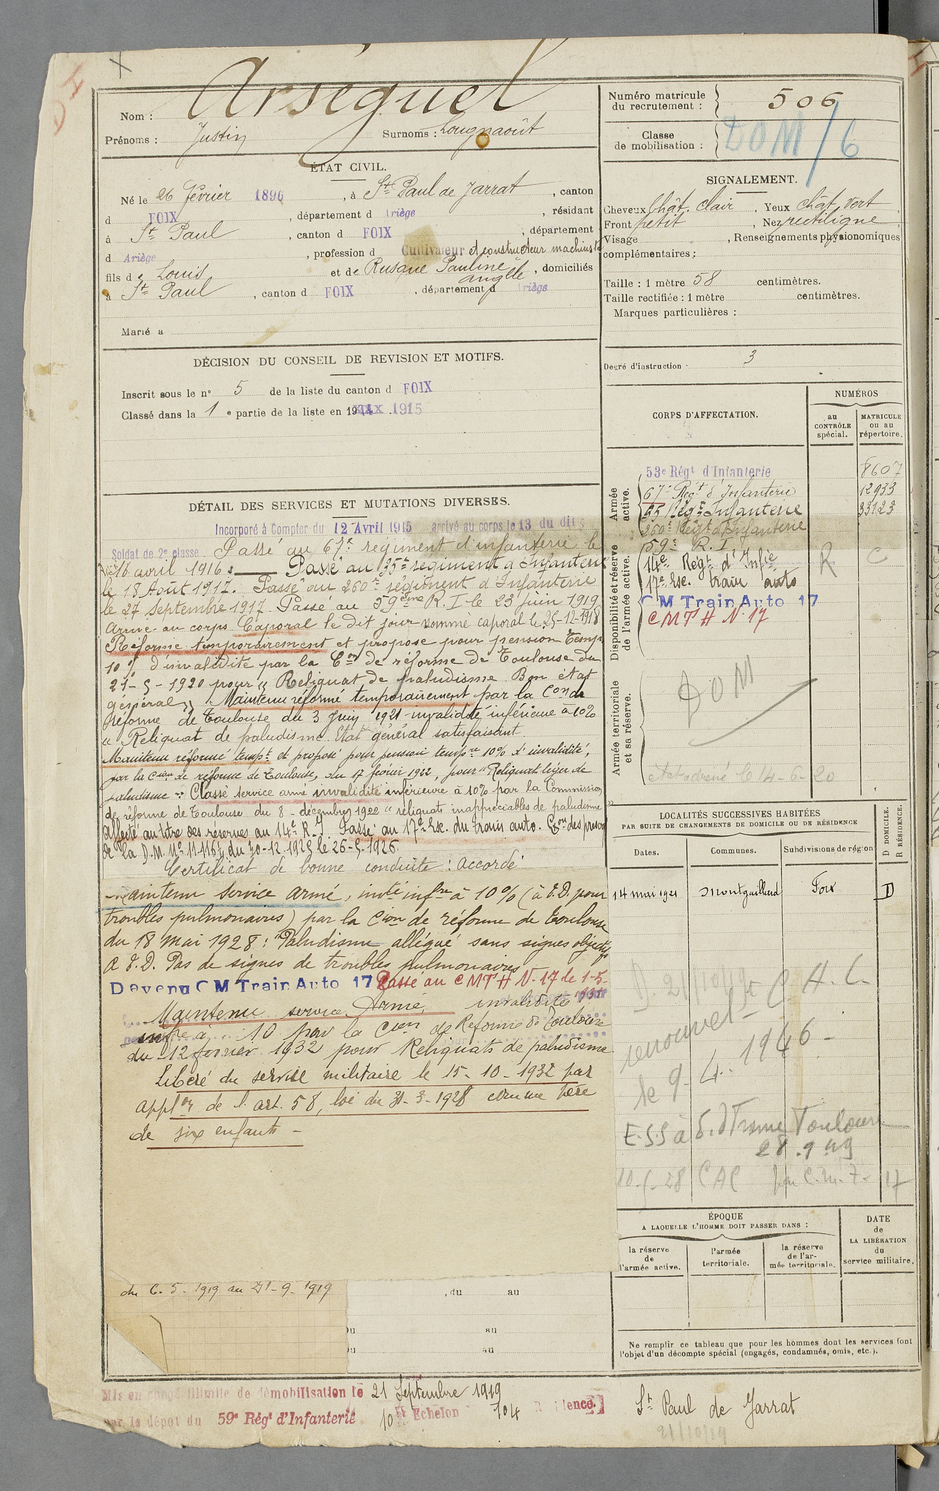 Nom : Arséguel
Prénoms : Justin Surnoms : Lougnaoüt
ÉTAT CIVIL.
Né le 26 février 1896, à St Paul de Jarrat, canton
d FOIX, département d Ariège, résidant
à St Paul, canton d FOIX, département
d Ariège, profession d Cultivateur et constructeur machiniste
fils de Louis et de Rusque Pauline Angèle, domiciliés
à St Paul, canton d FOIX, département d Ariège
Marié à
DÉCISION DU CONSEIL DE REVISION ET MOTIFS.
Inscrit sous le n° 5 de la liste du canton d FOIX
Classé dans la 1 e partie de la liste en 19 1915
DÉTAIL DES SERVICES ET MUTATIONS DIVERSES.
Incorporé à Compter du 12 Avril 1915 arrivé au corps le 13 du dit
Soldat de 2e classe. Passé au 67e régiment d'infanterie le
16 avril 1916. Passé au régiment d'Infanterie
le 18 Août 1917. Passé au 260e régiment d'Infanterie
le 27 Septembre 1917. Passé au 59ème R.I. le 23 juin 1919
Arrivé au corps Caporal le dit jour nommé caporal le 25-12-1918
Réformé temporairement et proposé pour pension temp
10% d'invalidité par la Con de réforme de Toulouse du
21-5-1920 pour "Reliquat de paludisme. Bon état
général". Maintenu réformé temporairement par la Con de
Réforme de Toulouse du 3 juin 1921 invalidité inférieure à 10%
"Reliquat de paludisme. Etat général satisfaisant.
Maintenu réformé tempt et proposé pour pension tempre 10% d'invalidité,
par la Cion de réforme de Toulouse, du 17 février 1922, pour "Reliquat léger de
paludisme". Classé service armé invalidité inférieure à 10% par la Commission
de réforme de Toulouse du 8 décembre 1922 "reliquats inappréciables de paludisme
Affecté au titre des réserves au 14e R.I. Passé au 17e Esc. du train auto.
de la D.M. N° 11.116 du 30-12-1925 le 26-5-1926.
Certificat de bonne conduite : Accordé
Maintenu service armé, invté infre à 10% (à E.D. pour
troubles pulmonaires) par la Cion de réforme de Toulouse
du 18 Mai 1928 : Paludisme allégué sans signes objectifs
A E.D. Pas de signes de troubles pulmonaires
Devenu CM Train Auto 17 Passé au CMTH N° 17 le 1-5-
Maintenu service Armé invalidité
infre à 10 par la Cion de Réforme de Toulouse
du 12 février 1932 pour Reliquats de paludisme
Libéré du service militaire le 15-10-1932 par
applon de l'art. 58, loi du 31-3-1928 comme père
de six enfants -
du 6-5-1919 au 21-9-1919
, du au
Du au
Du au
Mis en congé illimité de démobilisation le 21 Septembre 1919
par le dépôt du 59e Régt d'Infanterie 10e Echelon 104 Résidence
St Paul de Jarrat
21/10/19
Numéro matricule du recrutement : 506
Classe de mobilisation : DOM/6
SIGNALEMENT.
Cheveux Chât. clair, Yeux chât. vert
Front petit, Nez rectiligne
Visage , Renseignements physionomiques
complémentaires :
Taille : 1 mètre 58 centimètres.
Taille rectifiée : 1 mètre centimètres.
Marques particulières :
Degré d'instruction : 3
CORPS D'AFFECTATION.
NUMÉROS
au CONTRÔLE spécial.
MATRICULE ou au répertoire.
Armée active.
53e Régt d'Infanterie 8607
67e Regt d'Infanterie 12933
Regt Infanterie 33123
260e Régt d'Infanterie
Disponibilité et réserve de l'armée active.
59e R.I R C
14e Régt d'Infie
17e Esc. train auto
CM Train Auto 17
CMTH N° 17
Armée territoriale et sa réserve.
DOM
le 14-6-20
LOCALITÉS SUCCESSIVES HABITÉES
PAR SUITE DE CHANGEMENTS DE DOMICILE OU DE RÉSIDENCE
Dates. Communes. Subdivisions de région
D DOMICILE. R RÉSIDENCE.
14 mai 1921 Montgailhard Foix D
D. 21/10/19
C.A.C.
renouvel
le 9-4-1946
Toulouse
28.9.49
CAC
17
ÉPOQUE
A LAQUELLE L'HOMME DOIT PASSER DANS :
la réserve de l'armée active.
l'armée territoriale.
la réserve de l'armée territoriale.
DATE de LA LIBÉRATION du service militaire.
Ne remplir ce tableau que pour les hommes dont les services font
l'objet d'un décompte spécial (engagés, condamnés, omis, etc.).